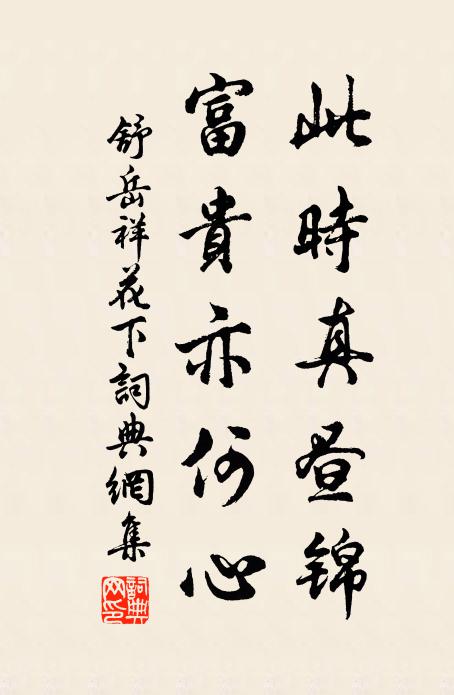 此時真昼锦
富貴亦何心
舒岳祥花下詞典網集
詞典
网印